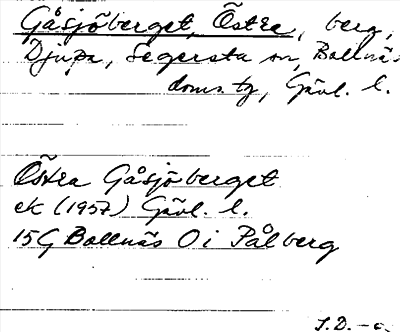 Gåsjöberget, Östra, berg,
Djupa, Segersta sn, Bollnäs
doms. tg, Gävl. l.
Östra Gåsjöberget
ek (1957) Gävl. l.
15G Bollnäs O i Pålberg